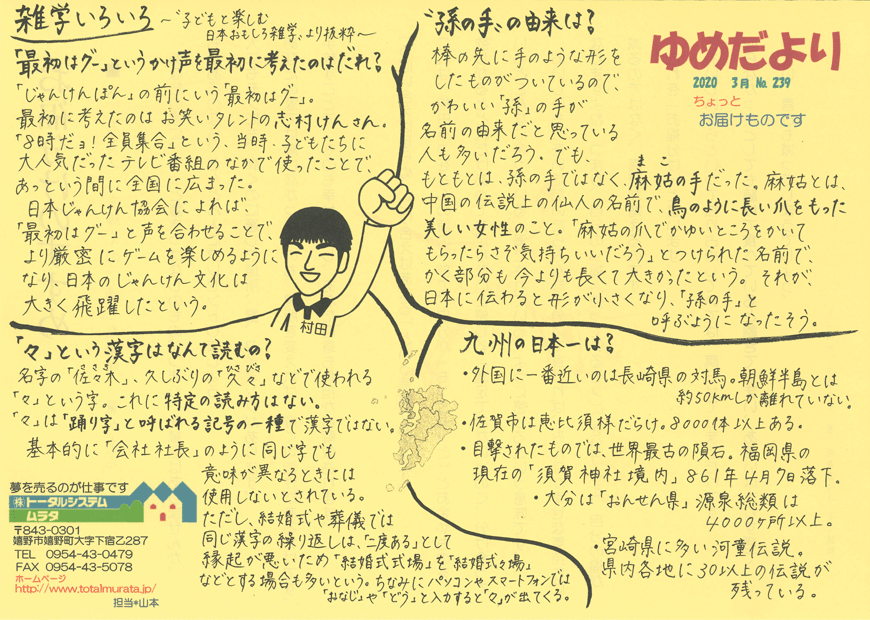 雑学いろいろ ～"子どもと楽しむ
日本おもしろ雑学"より抜粋～
「最初はグー」というかけ声を最初に考えたのはだれ？
「じゃんけんぽん」の前にいう「最初はグー」。
最初に考えたのは お笑いタレントの志村けんさん。
「8時だョ！全員集合」という、当時、子どもたちに
大人気だった テレビ番組のなかで使ったことで、
あっという間に全国に広まった。
日本じゃんけん協会によれば、
「最初はグー」と声を合わせることで、
より厳密にゲームを楽しめるように
なり、日本のじゃんけん文化は
大きく飛躍したという。
村田
"孫の手"の由来は？
棒の先に手のような形を
したものがついているので、
かわいい「孫」の手が
名前の由来だと思っている
人も多いだろう。でも、
まこ
もともとは、孫の手ではなく、麻姑の手だった。麻姑とは、
中国の伝説上の仙人の名前で、鳥のように長い爪をもった
美しい女性のこと。「麻姑の爪でかゆいところをかいて
もらったらさぞ気持ちいいだろう」とつけられた名前で、
かく部分も今よりも長くて大きかったという。それが、
日本に伝わると形が小さくなり、「孫の手」と
呼ぶようになったそう。
ゆめだより
2020 3月 No. 239
ちょっと
お届けものです
「々」という漢字はなんて読むの？
名字の「佐々木」、久しぶりの「久々」などで使われる
さ ひさびさ
「々」という字。これに特定の読み方はない。
「々」は「踊り字」と呼ばれる記号の一種で漢字ではない。
基本的に「会社社長」のように同じ字でも
意味が異なるときには
使用しないとされている。
ただし、結婚式や葬儀では
同じ漢字の繰り返しは、「二度ある」として
縁起が悪いため「結婚式式場」を「結婚式々場」
などとする場合も多いという。ちなみにパソコンやスマートフォンでは
「おなじ」や「どう」と入力すると「々」が出てくる。
九州の日本一は？
・外国に一番近いのは長崎県の対馬。朝鮮半島とは
約50kmしか離れていない。
・佐賀市は恵比須様だらけ。8000体以上ある。
・目撃されたものでは、世界最古の隕石。福岡県の
現在の「須賀神社境内」861年4月7日落下。
・大分は「おんせん県」源泉総類は
4000ヶ所以上。
・宮崎県に多い河童伝説。
県内各地に30以上の伝説が
残っている。
夢を売るのが仕事です
㈱トータルシステム
ムラタ
〒843-0301
嬉野市嬉野町大字下宿乙287
TEL 0954-43-0479
FAX 0954-43-5078
ホームページ
http://www.totalmurata.jp/
担当*山本